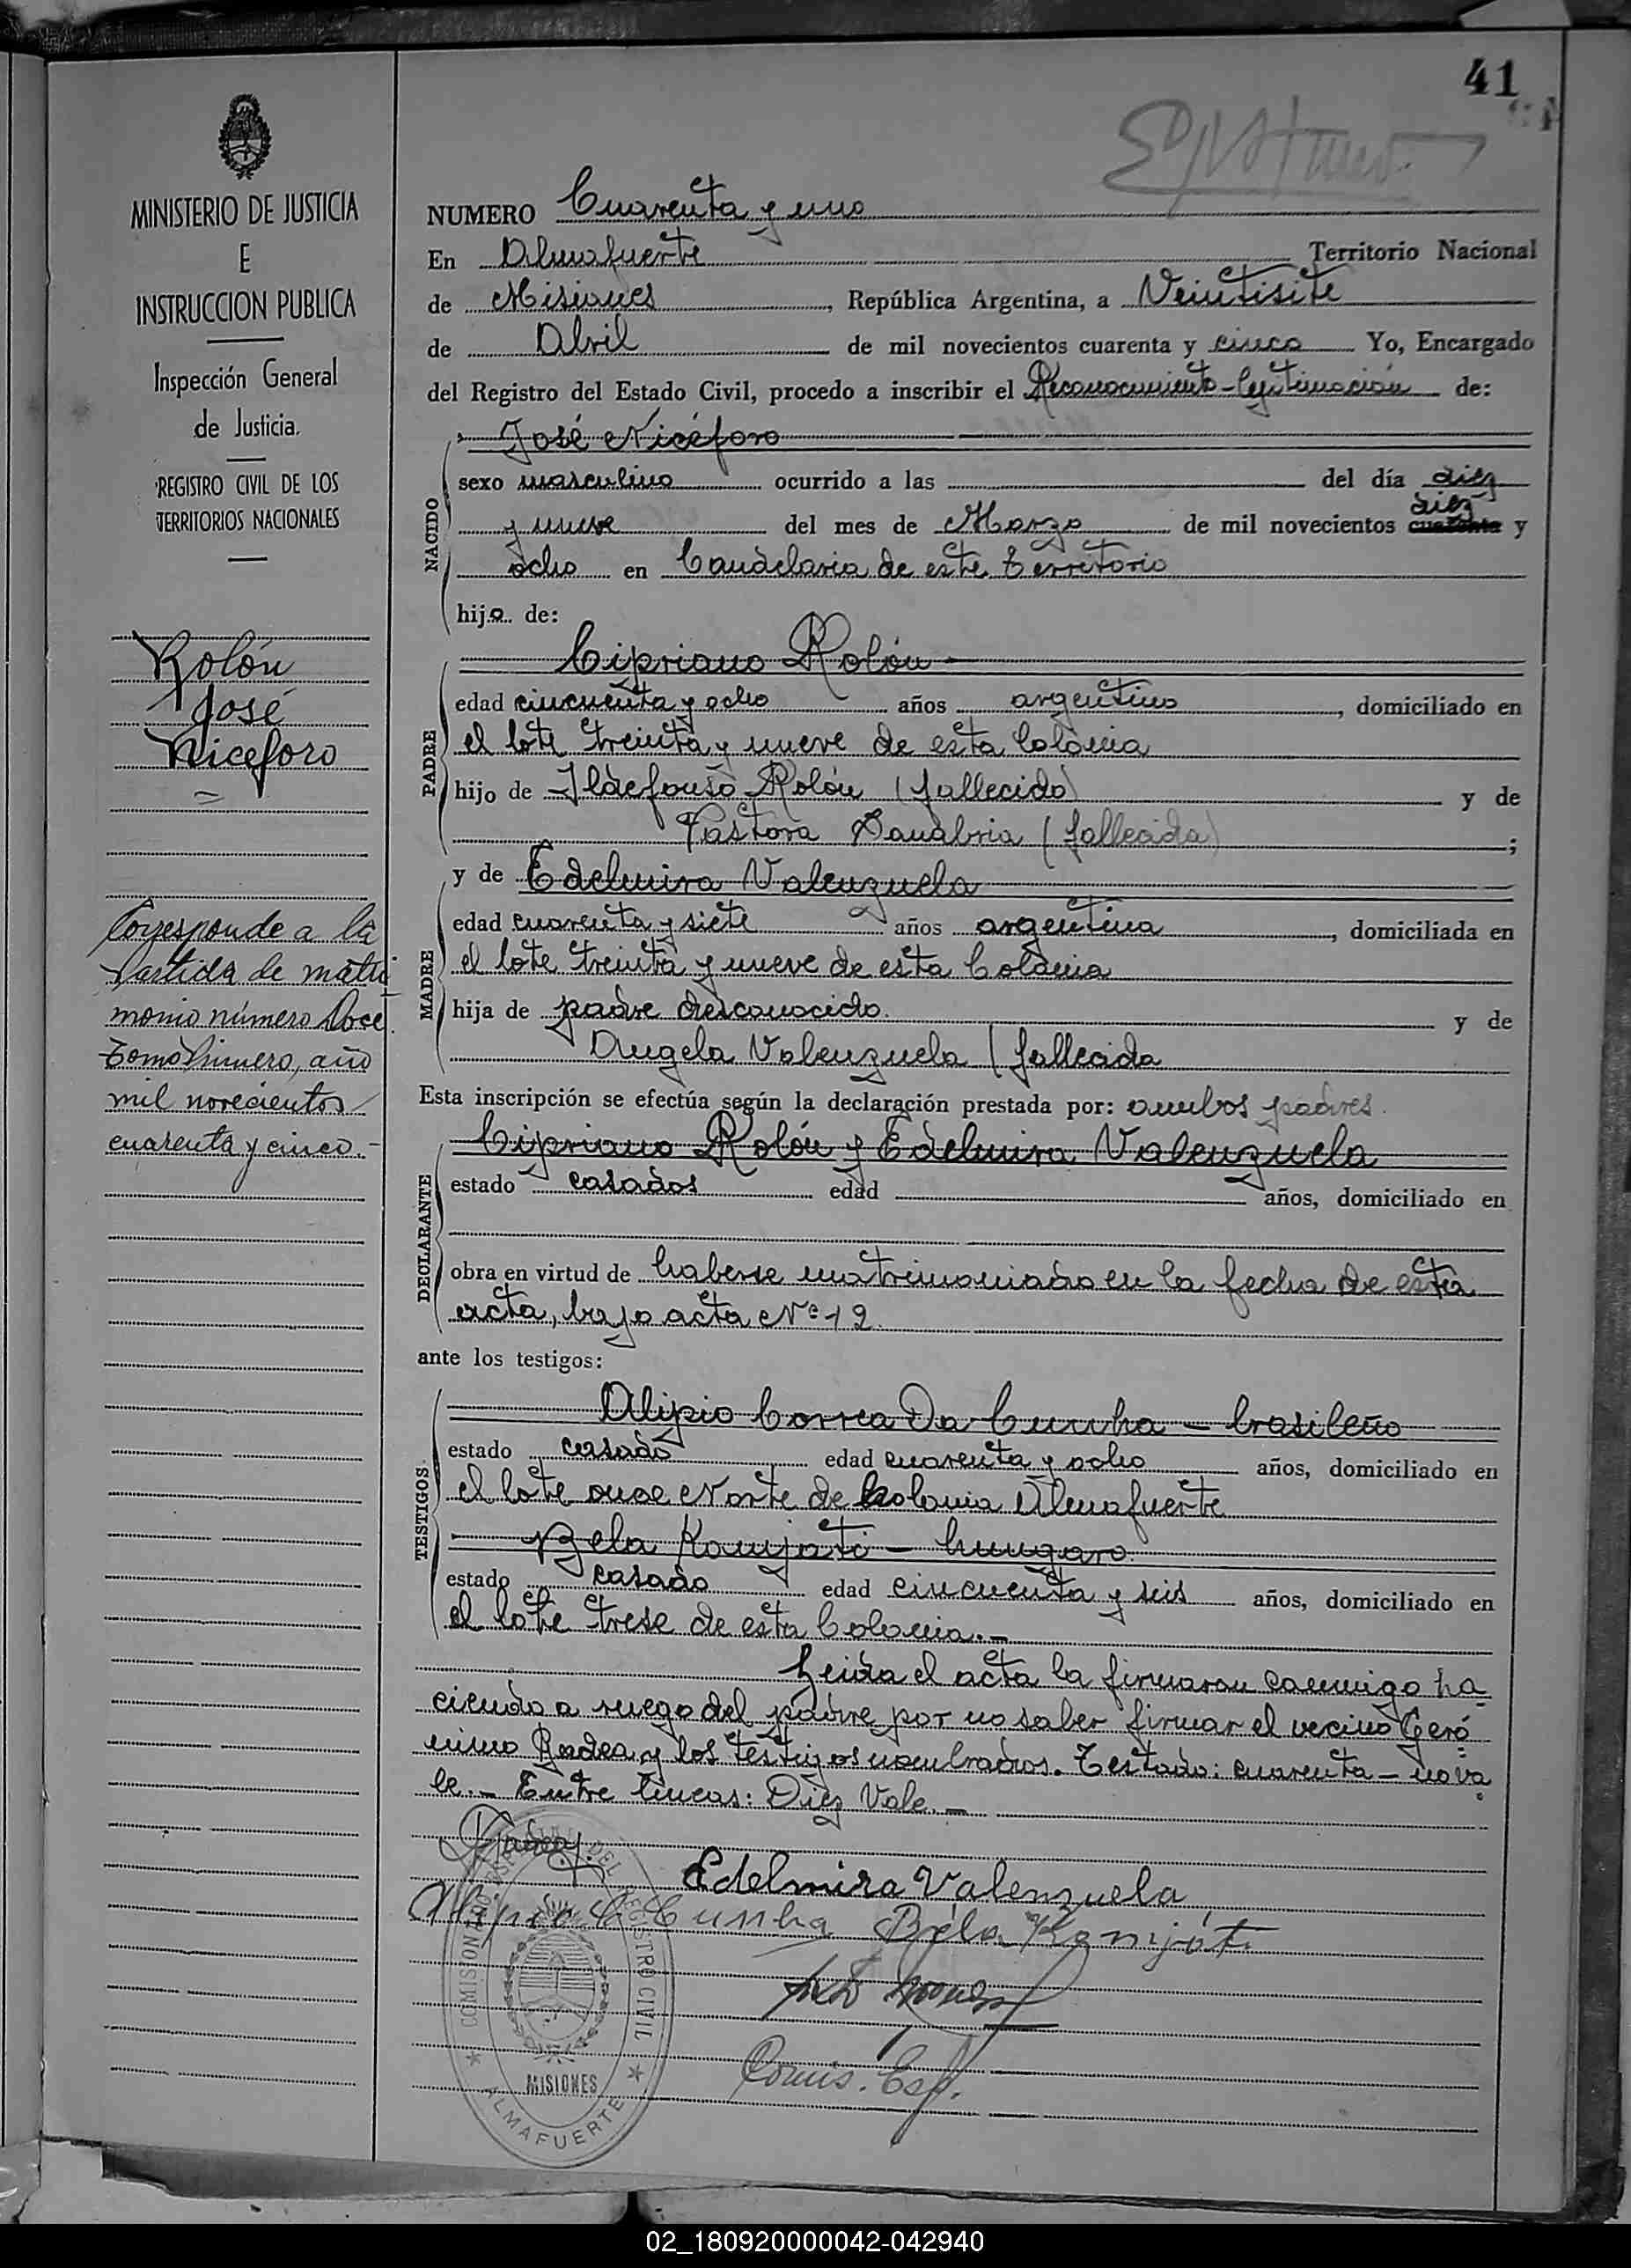 41
MINISTERIO DE JUSTICIA
E
INSTRUCCION PUBLICA
Inspección General
de Justicia.
REGISTRO CIVIL DE LOS
TERRITORIOS NACIONALES
Rolón
José
Niceforo
Corresponde a la
Partida de matri
monio número Doce.
Tomo Primero, año
mil novecientos
cuarenta y cinco.-
NUMERO Cuarenta y uno
En Almafuerte Territorio Nacional
de Misiones, República Argentina, a Veintisite
de Abril de mil novecientos cuarenta y cinco Yo, Encargado
del Registro del Estado Civil, procedo a inscribir el Reconocimiento-Legitimación de:
José Nicéforo
NACIDO
sexo masculino ocurrido a las del día diez
diez
y nueve del mes de Marzo de mil novecientos cuarenta y
ocho en Candelaria de este Territorio
hijo de:
Cipriano Rolón
PADRE
edad cincuenta y ocho años argentino, domiciliado en
el lote treinta y nueve de esta Colonia
hijo de Ildefonso Rolón (fallecido) y de
Pastora Sanabria (fallecida) ;
y de Edelmira Valenzuela
MADRE
edad cuarenta y siete años argentina, domiciliada en
el lote treinta y nueve de esta Colonia
hija de padre desconocido. y de
Angela Valenzuela (fallecida
Esta inscripción se efectúa según la declaración prestada por: ambos padres.
Cipriano Rolón y Edelmira Valenzuela
DECLARANTE
estado casados edad años, domiciliado en
obra en virtud de haberse matrimoniado en la fecha de esta
acta, bajo acta Nº 12.
ante los testigos:
TESTIGOS.
Alipio Correa Da Cunha - brasileño
estado casado edad cuarenta y ocho años, domiciliado en
el lote once Norte de Colonia Almafuerte
Bela Kamjati - hungaro.
estado casado edad cincuenta y seis años, domiciliado en
el lote trese de esta Colonia.-
Leida el acta la firmaron conmigo ha
ciendo a ruego del padre por no saber firmar el vecino Geró
nimo Badea y los testigos nombrados. Testado: cuarenta - no va
le.- Entre lineas: Diez Vale.-
Edelmira Valenzuela
Alipio C Cunha Béla Kamjáti
Comis. Esp.
COMISION REGISTRO CIVIL
MISIONES
ALMAFUERTE
02_180920000042-042940